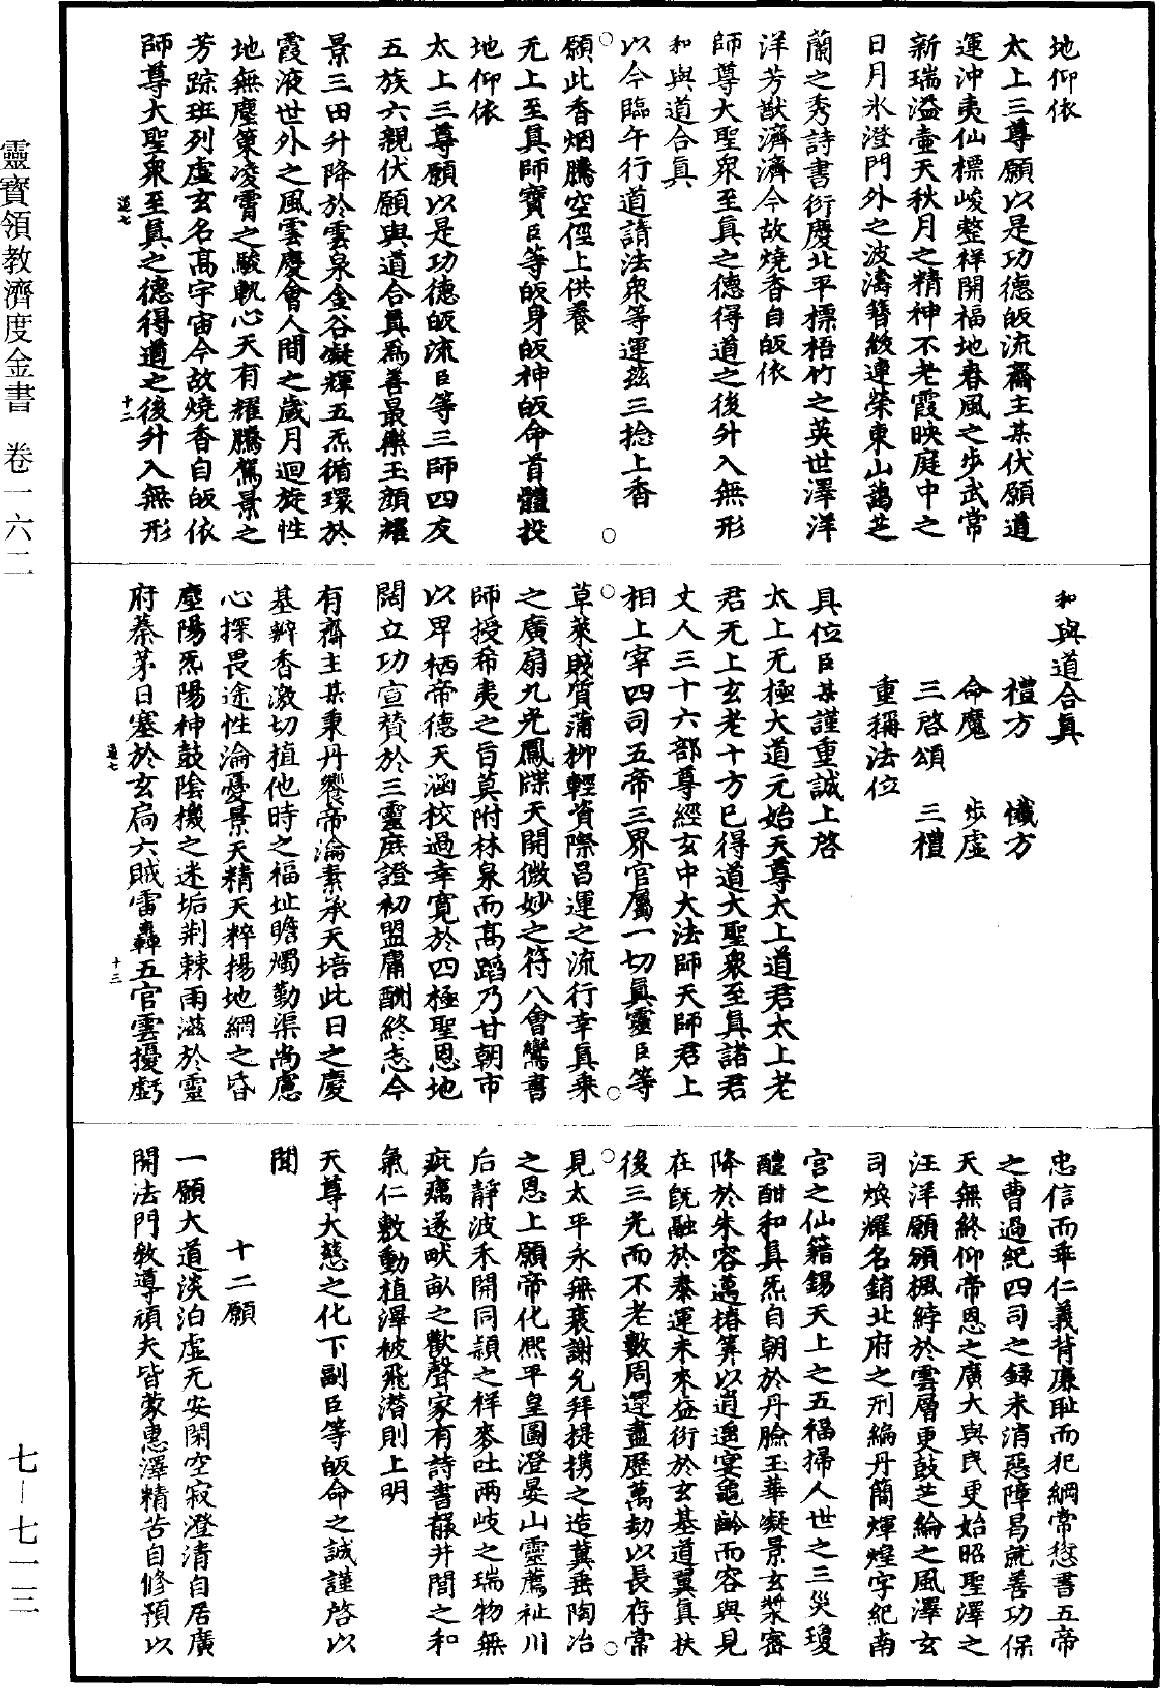 地仰依
太上三尊願以是功德皈流齋主某伏願道
運沖夷仙標峻整祥開福地春風之步武常
新瑞溢壷天秋月之精神不老霞映庭中之
日月氷澄門外之波濤簪紱連榮東山藹芝
蘭之秀詩書衍慶北平標梧竹之英世澤洋
洋芳猷濟濟今故燒香自皈依
師尊大聖衆至真之德得道之後升入無形
和與道合真
以今臨午行道請法衆等運茲三捻上香
願此香烟騰空徑上供養
无上至真師寶臣等皈身皈神皈命首體投
地仰依
太上三尊願以是功德皈流臣等三師四友
五族六親伏願與道合真爲善最樂玉顔耀
景三田升降於雲泉金谷凝輝五炁循環於
霞液世外之風雲慶會人間之歲月迴旋性
地無塵策凌霄之駿軌心天有耀騰駕景之
芳踪班列虛玄名高宇宙今故燒香自皈依
師尊大聖衆至真之德得道之後升入無形
道七 十二
和與道合真
禮方 懺方
命魔 步虛
三啓頌 三禮
重稱法位
具位臣某謹重誠上啓
太上无極大道元始天尊太上道君太上老
君无上玄老十方已得道大聖衆至真諸君
丈人三十六部尊經玄中大法師天師君上
相上宰四司五帝三界官屬一切真靈臣等
草萊賎質蒲柳輕資際昌運之流行幸真乗
之廣扇九光鳳牒天開微妙之符八會鸞書
師授希夷之旨莫附林泉而高蹈乃甘朝市
以卑栖帝德天涵校過幸寛於四極聖恩地
闊立功宣賛於三靈庶證初盟庸酬終志今
有齋主某秉丹饗帝瀹素承天培此日之慶
基辨香激切植他時之福址瞻燭勤渠尚慮
心探畏途性淪憂景天精天粹揚地網之昏
塵陽炁陽神鼓陰機之迷垢荆棘雨滋於靈
府蓁茅日塞於玄扃六賊雷轟五官雲擾虧
道七 十三
忠信而乖仁義背廉耻而犯綱常愆書五帝
之曹過紀四司之録未消惡障曷就善功保
天無終仰帝恩之廣大與民更始昭聖澤之
汪洋願頒楓綍於雲層更鼓芝綸之風澤玄
司煥耀名銷北府之刑編丹簡煇煌字紀南
宫之仙籍錫天上之五福掃人世之三災瓊
醴酣和真炁自朝於丹臉玉華凝景玄漿密
降於朱容邁椿筭以逍遥宴龜齡而容與見
在旣融於泰運未來益衍於玄基道翼真扶
後三光而不老數周運盡歷萬劫以長存常
見太平永無衰謝允拜提携之造冀垂陶冶
之恩上願帝化熙平皇圖澄晏山靈薦祉川
后靜波禾開同頴之祥麥吐兩岐之瑞物無
疵癘遂畎畝之歡聲家有詩書靄井閭之和
氣仁敷動植澤被飛潛則上明
天尊大慈之化下副臣等皈命之誠謹啓以
聞
十二願
一願大道淡泊虛无安閑空寂澄清自居廣
開法門敎導頑夫皆蒙惠澤精苦自修預以
靈寳領教濟度金書 卷一六二
七－七一三